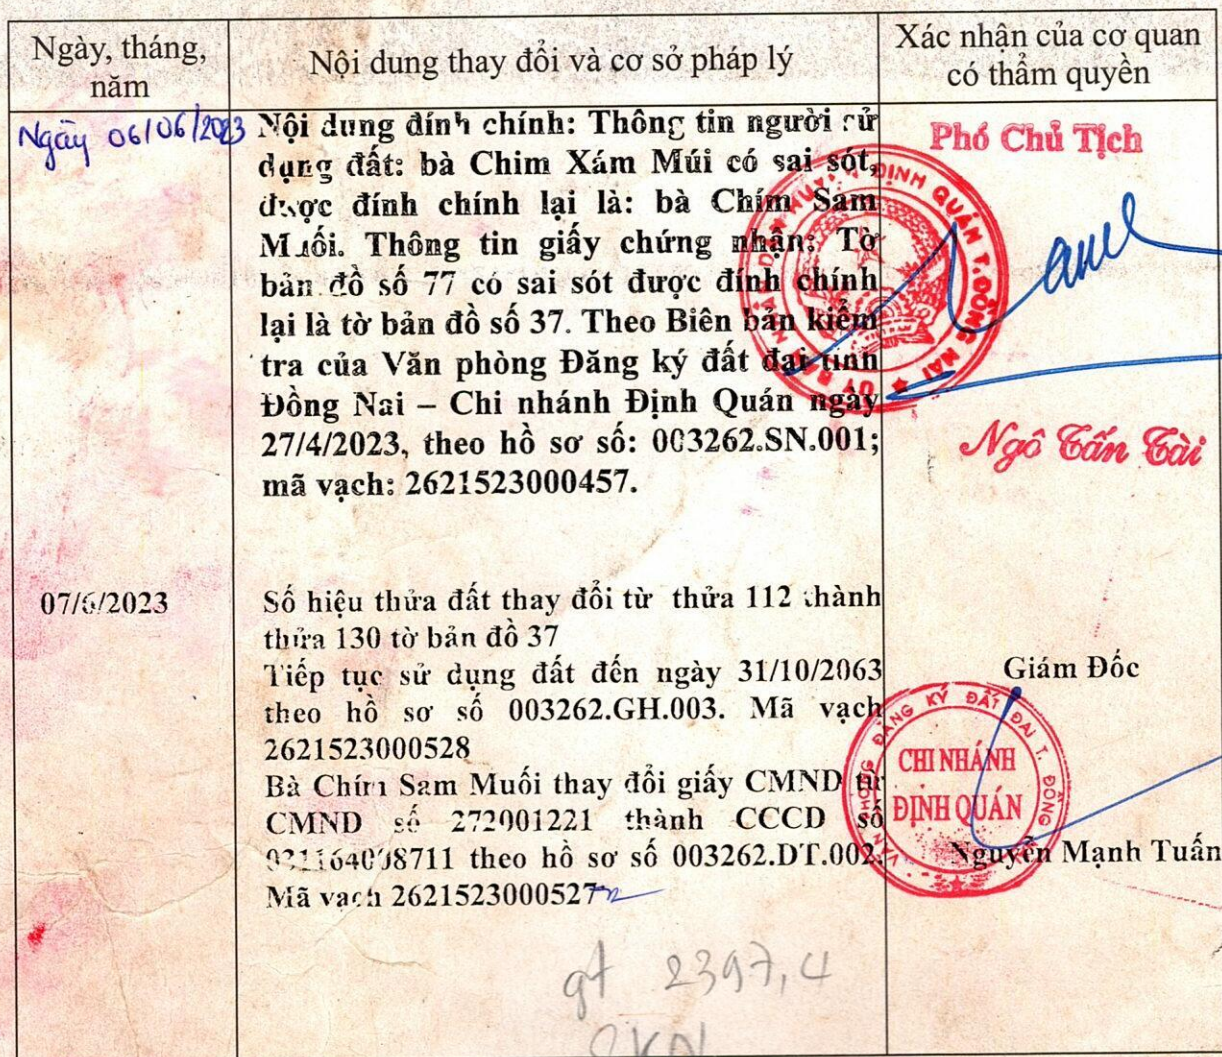 Ngày, tháng,
năm
Nội dung thay đổi và cơ sở pháp lý
Xác nhận của cơ quan
có thẩm quyền
Ngày 06/06/2023
Nội dung đính chính: Thông tin người sử
dụng đất: bà Chim Xám Múi có sai sót,
được đính chính lại là: bà Chím Sam
Muối. Thông tin giấy chứng nhận: Tờ
bản đồ số 77 có sai sót được đính chính
lại là tờ bản đồ số 37. Theo Biên bản kiểm
tra của Văn phòng Đăng ký đất đai tỉnh
Đồng Nai – Chi nhánh Định Quán ngày
27/4/2023, theo hồ sơ số: 003262.SN.001;
mã vạch: 2621523000457.
Phó Chủ Tịch
ỦY BAN NHÂN DÂN HUYỆN ĐỊNH QUÁN T.ĐỒNG NAI
Ngô Tấn Tài
07/6/2023
Số hiệu thửa đất thay đổi từ thửa 112 thành
thửa 130 tờ bản đồ 37
Tiếp tục sử dụng đất đến ngày 31/10/2063
theo hồ sơ số 003262.GH.003. Mã vạch
2621523000528
Bà Chím Sam Muối thay đổi giấy CMND từ
CMND số 272001221 thành CCCD số
theo hồ sơ số 003262.DT.002.
Mã vạch 2621523000527
Giám Đốc
VĂN PHÒNG ĐĂNG KÝ ĐẤT ĐAI T. ĐỒNG
CHI NHÁNH
ĐỊNH QUÁN
Nguyễn Mạnh Tuấn
gt 2397,4